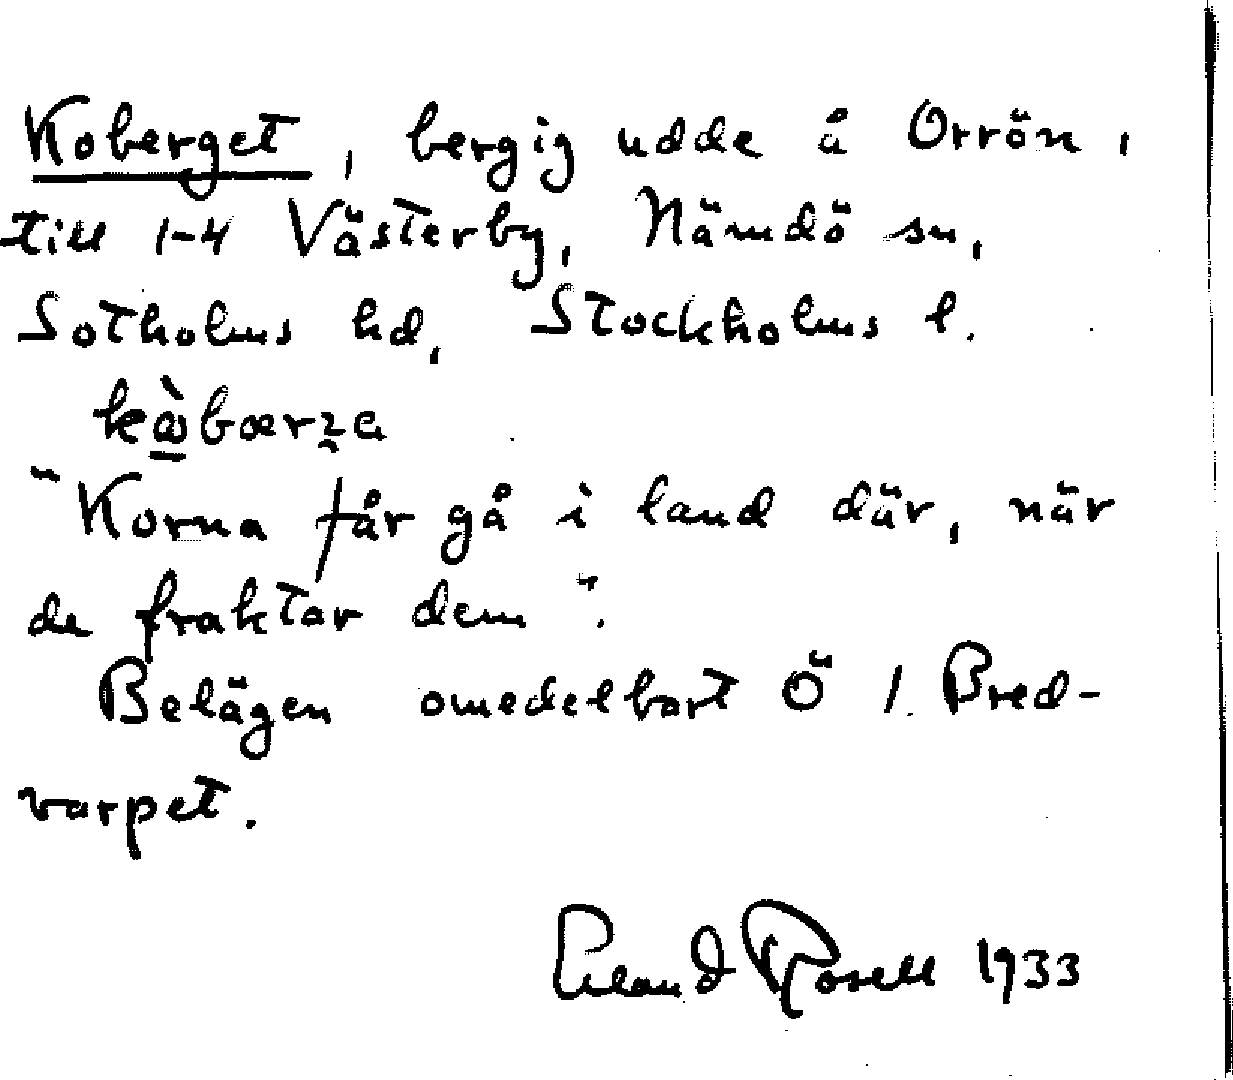 Koberget, bergig udde å Orrön,
till 1-4 Västerby, Nämdö sn,
Sotholms hd, Stockholms l.
"Korna får gå i land där, när
de fraktar dem".
Belägen omedelbart Ö l. Bred-
varpet.
Erland Rosell 1933